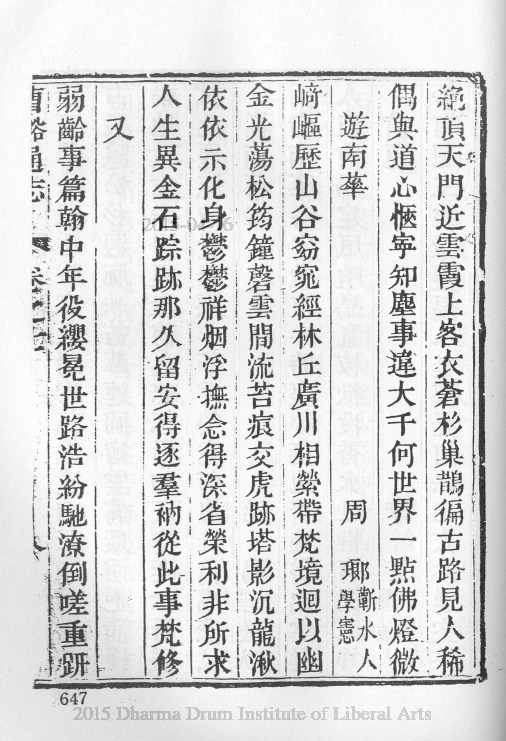 絕頂天門近雲霞上客衣蒼杉巢鵲徧古路見人稀
偶與道心愜寧知塵事違大千何世界一點佛燈微
遊南華 周瑯蘄水人學憲
﨑嶇歷山谷窈窕經林丘廣川相縈帶梵境迴以幽
金光蕩松筠鐘磬雲間流苔痕交虎跡塔影沉龍湫
依依示化身鬱鬱祥烟浮撫念得深省榮利非所求
人生異金石踪跡那久留安得逐羣衲從此事梵修
又
弱齡事篇翰中年役纓冕世路浩紛馳潦倒嗟重趼
曹谿通志
647
2015 Dharma Drum Institute of Liberal Arts